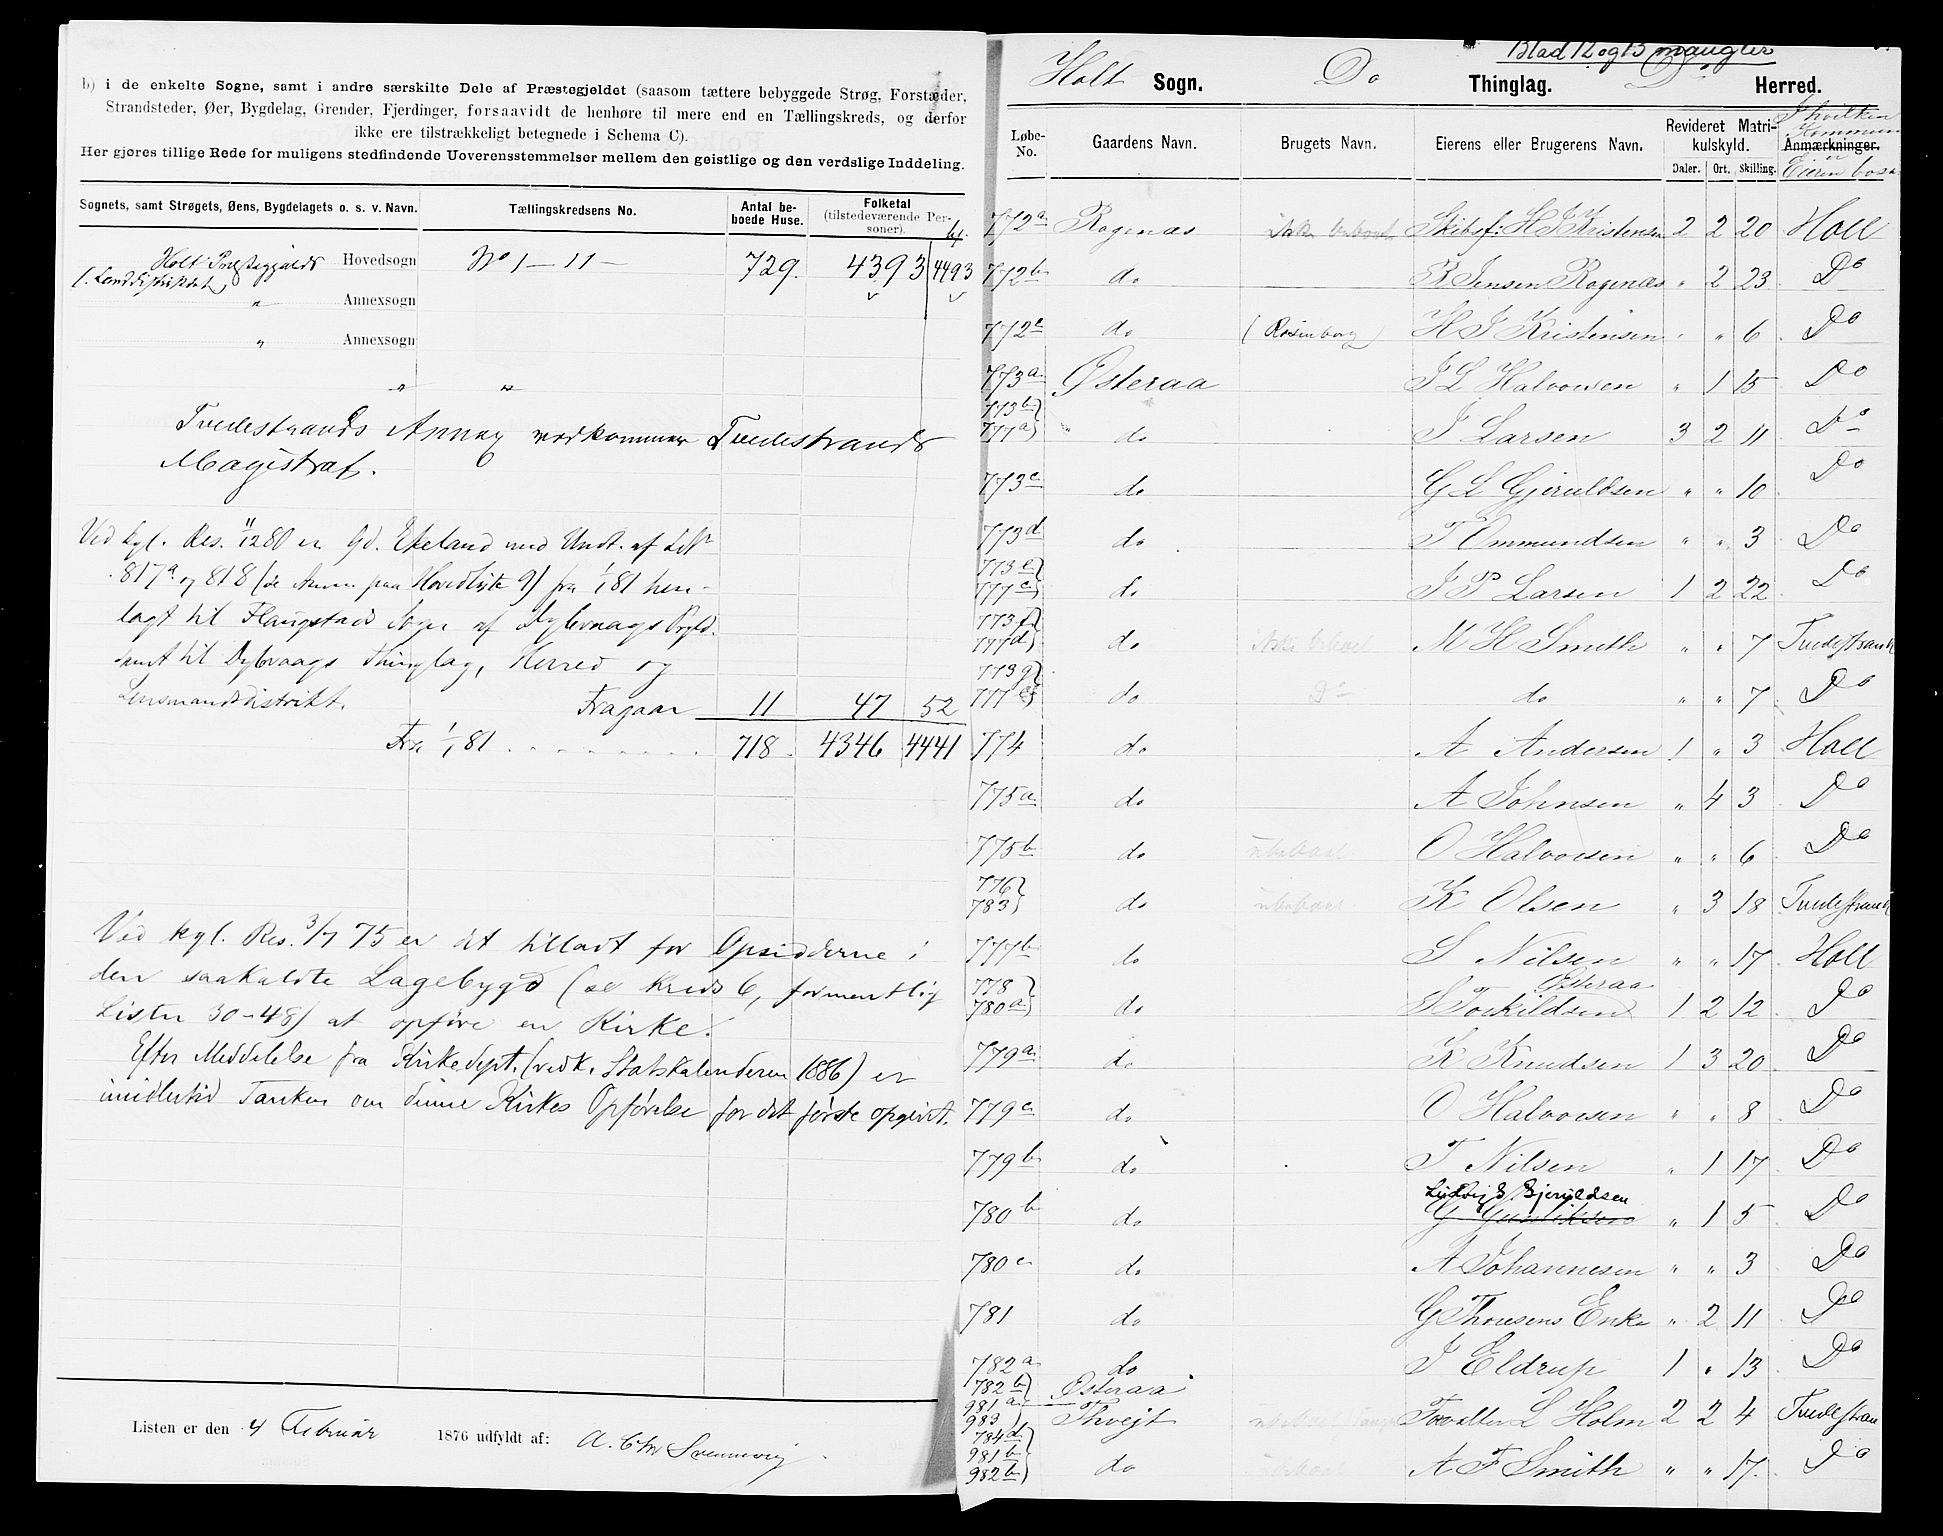 b) i de enkelte Sogne, samt i andre særskilte Dele af Præstegjeldet (saasom tættere bebyggede Strøg, Forstæder,
Strandsteder, Øer, Bygdelag, Grender, Fjerdinger, forsaavidt de henhøre til mere end en Tællingskreds, og derfor
ikke ere tilstrækkeligt betegnede i Schema C).
Her gjøres tillige Rede for muligens stedfindende Uoverensstemmelser mellem den geistlige og den verdslige Inddeling.
Sognets, samt Strøgets, Øens, Bygdelagets o. s. v. Navn. Tællingskredsens No. Antal be-boede Huse. Folketal (tilstedeværende Per-soner).
Holt Præstegjelds Hovedsogn No 1 — 11 — 729. 4393 4493
(Landdistriktet)
" Annexsogn
" Annexsogn
" "
Tvedestrands Annex vedkommer Tvedestrands
Magistrat.
Ved kgl. Res. 11/12 80 er Gd. Ekeland med Undt. af LN
817a og 818 (se Anm. paa Hovedliste 9) fra 1/1 81 hen-
lagt til Flangstad Sogn af Dybvaags Prgld.
samt til Dybvaags Thinglag, Herred og
Lensmandsdistrikt. Fragaar 11 47 52
Fra 1/1 81 . . . . . . . . 718. 4346 4441
Ved kgl. Res. 3/7 75 er det tilladt for Opsidderne i
den saakaldte Lagebygd (se Kreds 6, formentlig
Lister 30-48) at opføre en Kirke.
Efter Meddelelse fra Kirkedept. (vedk. Statskalenderen 1886) er
imidlertid Tanken om denne Kirkes Opførelse for det første opgivet.
Listen er den 4 Februar 1876 udfyldt af: A. Chr
Blad 12 og 13 mangler
Holt Sogn. Do Thinglag. Do Herred.
Løbe-No. Gaardens Navn. Brugets Navn. Eierens eller Brugerens Navn. Revideret Matri-kulskyld. Daler. Ort. Skilling. Anmærkninger. I hvilken Kommune er Eieren bosat
772a Ragenæs ikke beboet Skibsf: H J Kristensen 2 2 20 Holt
772b do R Jensen Ragenæs " 2 23 Do
772c do (Rosenborg) H J Kristensen " " 6 Do
773a Østeraa J L Halvorsen " 1 15 Do
773b 777a do J Larsen 3 2 11 Do
773c do G L Gjeruldsen " " 10 Do
773d do T Ommundsen " " 3 Do
773e 777c do J P Larsen 1 2 22 Do
773f 777d do ikke beboet M H Smith " " 7 Tvedestrand
773g 777e do Do do " " 7 Do
774 do A Andersen 1 " 3 Holt
775a do A Johnsen " 4 3 Do
775b do ubeboet O Halvorsen " " 6 Do
776 783 do ubeboet K Olsen " 3 18 Tvedestrand
777b do S Nilsen " " 17 Holt
778 780a do S Torkildsen Østeraa 1 2 12 Do
779a do K Knudsen 1 3 20 Do
779c do O Halvorsen " " 8 Do
779b do T Nilsen " 1 17 Do
780b do Ludvig S. Gjeruldsen " 1 5 Do
780c do A Johannesen " " 3 Do
781 do G Thoresens Enke " 2 11 Do
782a do J Eldrup 1 " 13 Do
782b 981a 983 Østeraa Thvejt ubeboet Forvalter L Holm 2 2 4 Tvedestran
784d 981b 982b do ubeboet A F Smith " " 17. Do